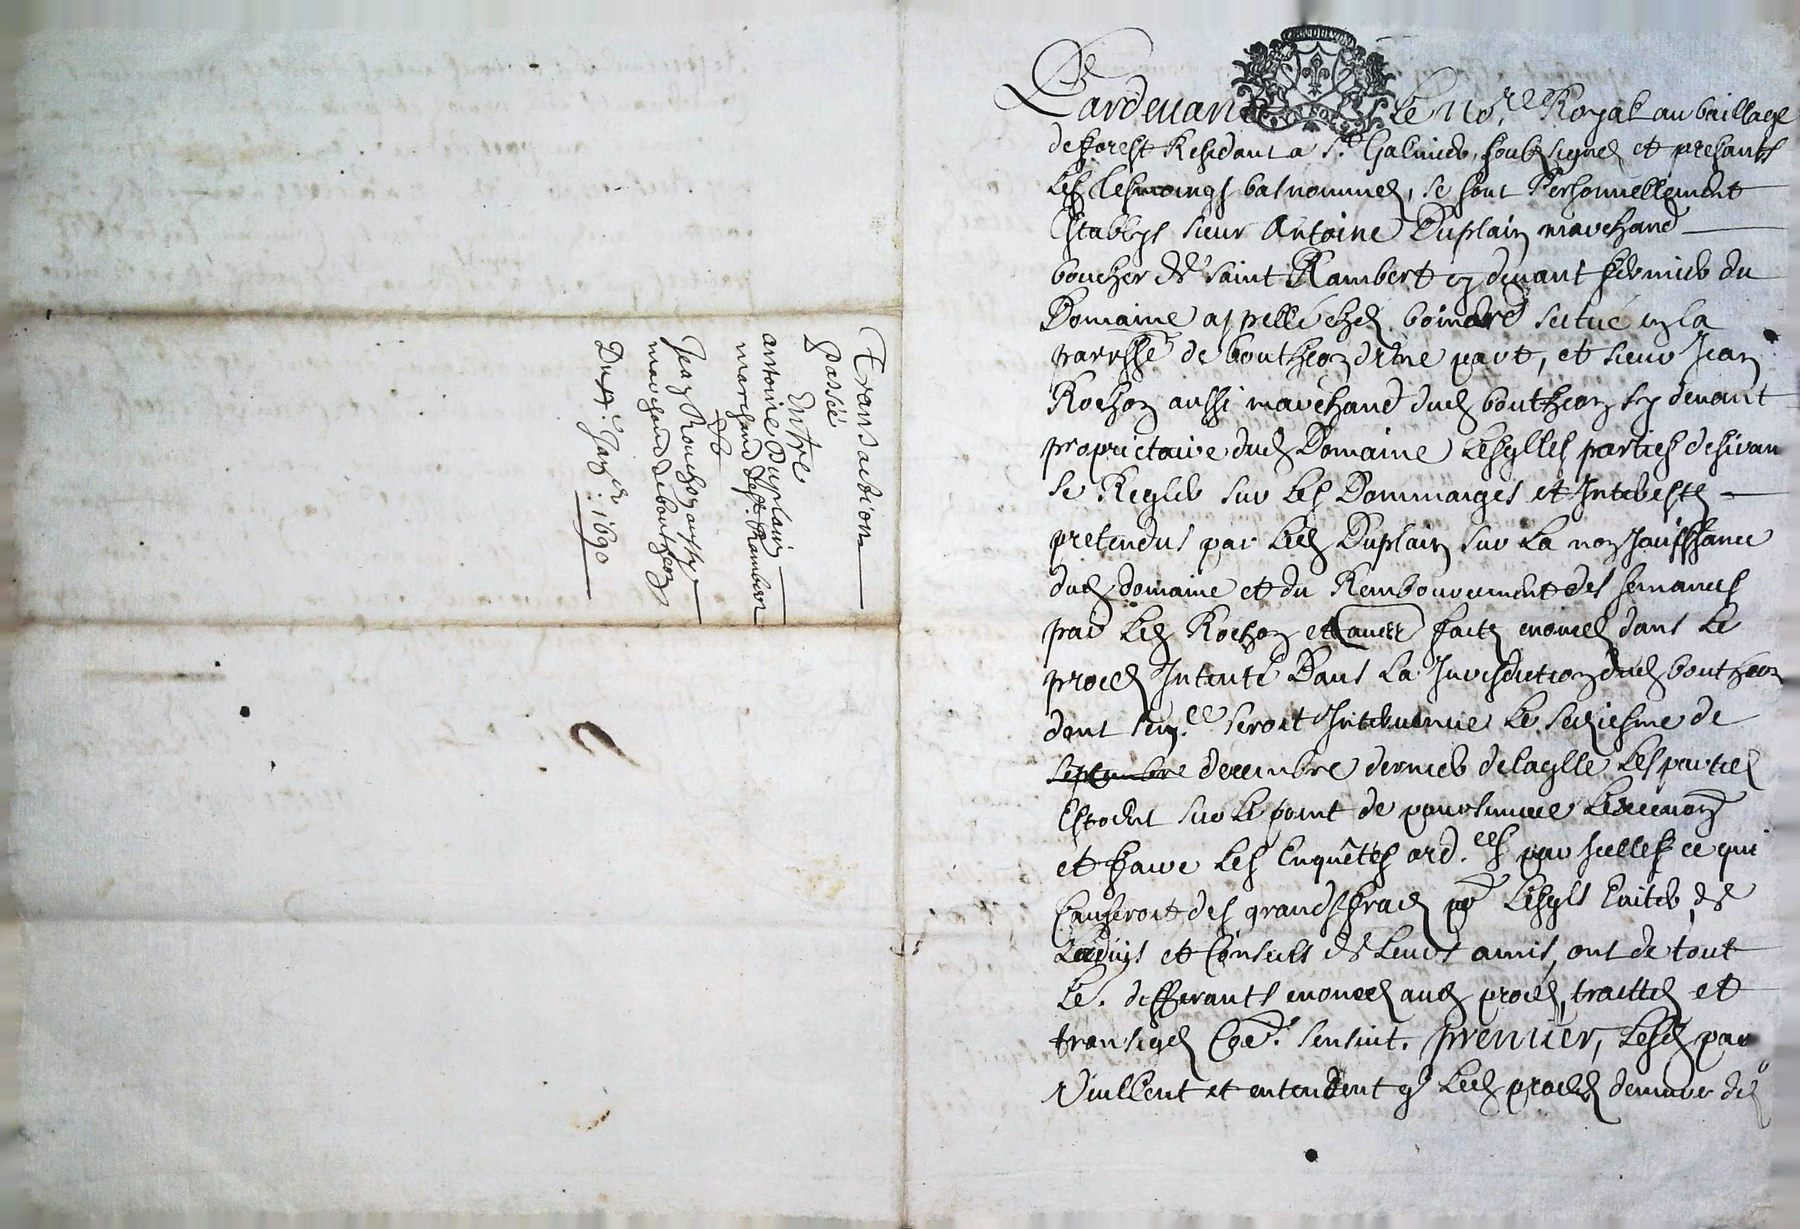 Transaction
Passée
Entre
antoine Duplain
marchand de st. Rambert
Et
Jean Rouchon aussy
marchand de boutheon
Du
Janer : 1690
Pardevant Le Nore Royal au bailliage
de fforest Residant a st Galmier, soubzsigné et presants
Les tesmoings bas nommés, se sont Personnellement
Establys sieur Antoine Duplain marchand
boucher de saint Rambert cy devant fermier du
Domaine appellé chez boinard scitué en la
parrisse de boutheon d'une part, et sieur Jean
Rochon aussi marchand dud boutheon cy devant
proprietaire dud Domaine Lesqlles parties desirant
se Regler sur Les Dommaiges et Interests
pretendus par Led Duplain sur La non Jouissance
dud domaine et du Remboursement des semances
par Led Rochon et autres faits enoncés dans Le
procés Intenté Dans La Jurisdiction dud boutheon
dont sence seroit Intervenue Le seziesme de
septembre decembre dernier de laqlle Les parties
Estoient sur Le point de poursuivre
et ffaire Les Enquêtes ordées par Icelles ce qui
Causeroit des grands fraix pr Lesqls Eviter, de
Ladvis et Conseils de Leurs amis, ont de tout
Le. differants enoncés aud procés, traittés et
transigés Coe. sensuit. premier, Lesd par
Veullent et entendent q Led procés demeure de